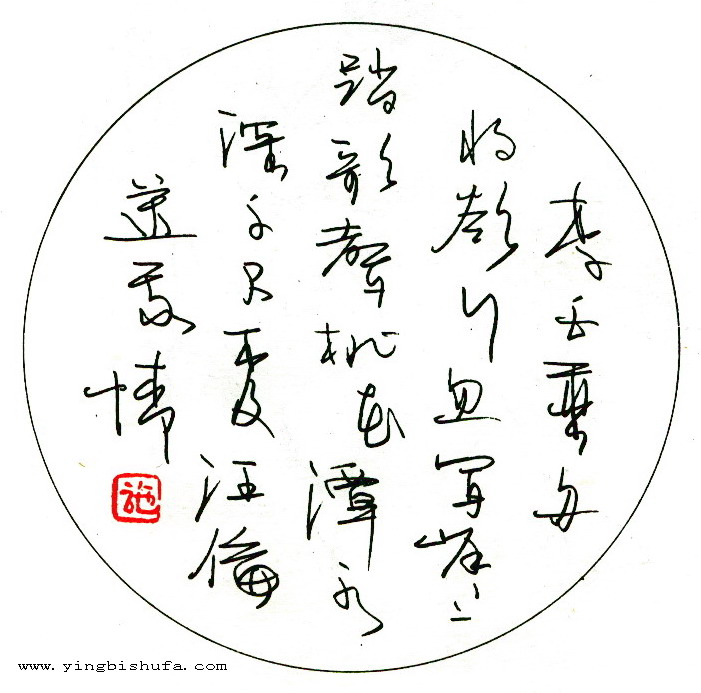 李白乘舟
将欲行忽闻岸上
踏歌聲桃花潭水
深千尺不及汪倫
送我情
www.yingbishufa.com